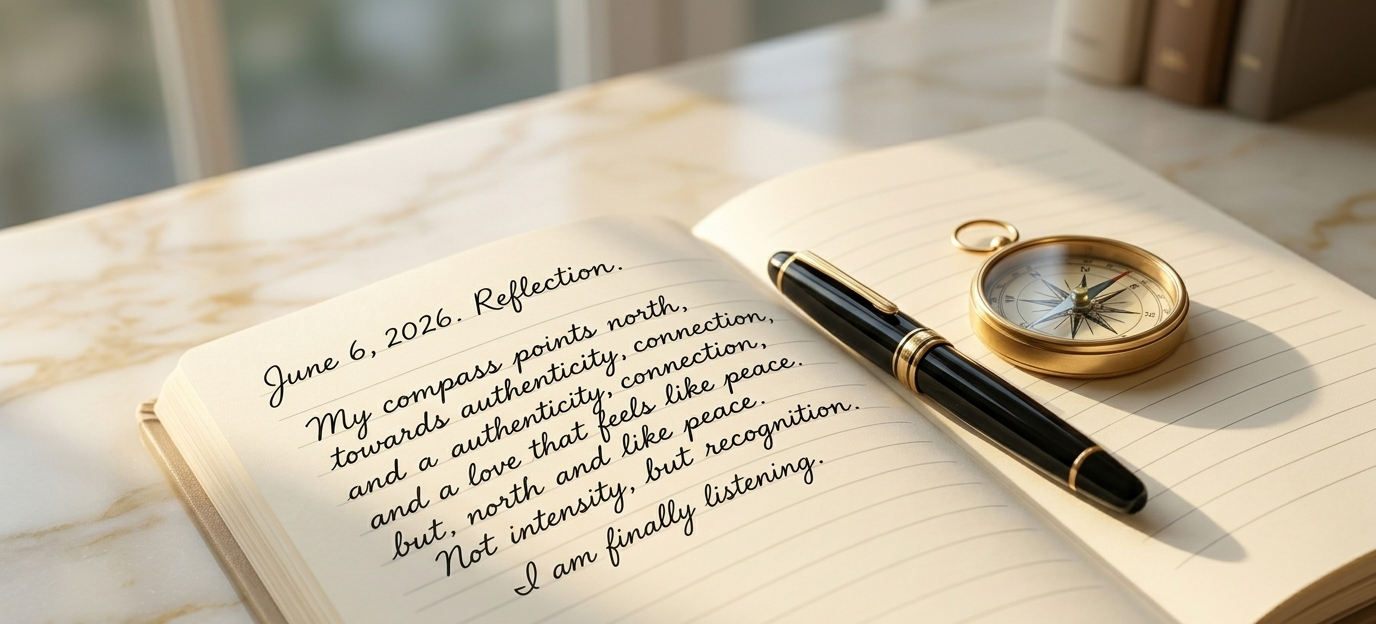 June 6, 2026. Reflection.
My compass points north,
towards authenticity, connection,
and a authenticity, connection,
and a love that feels like peace.
but, north and like peace.
Not intensity, but recognition.
I am finally listening.